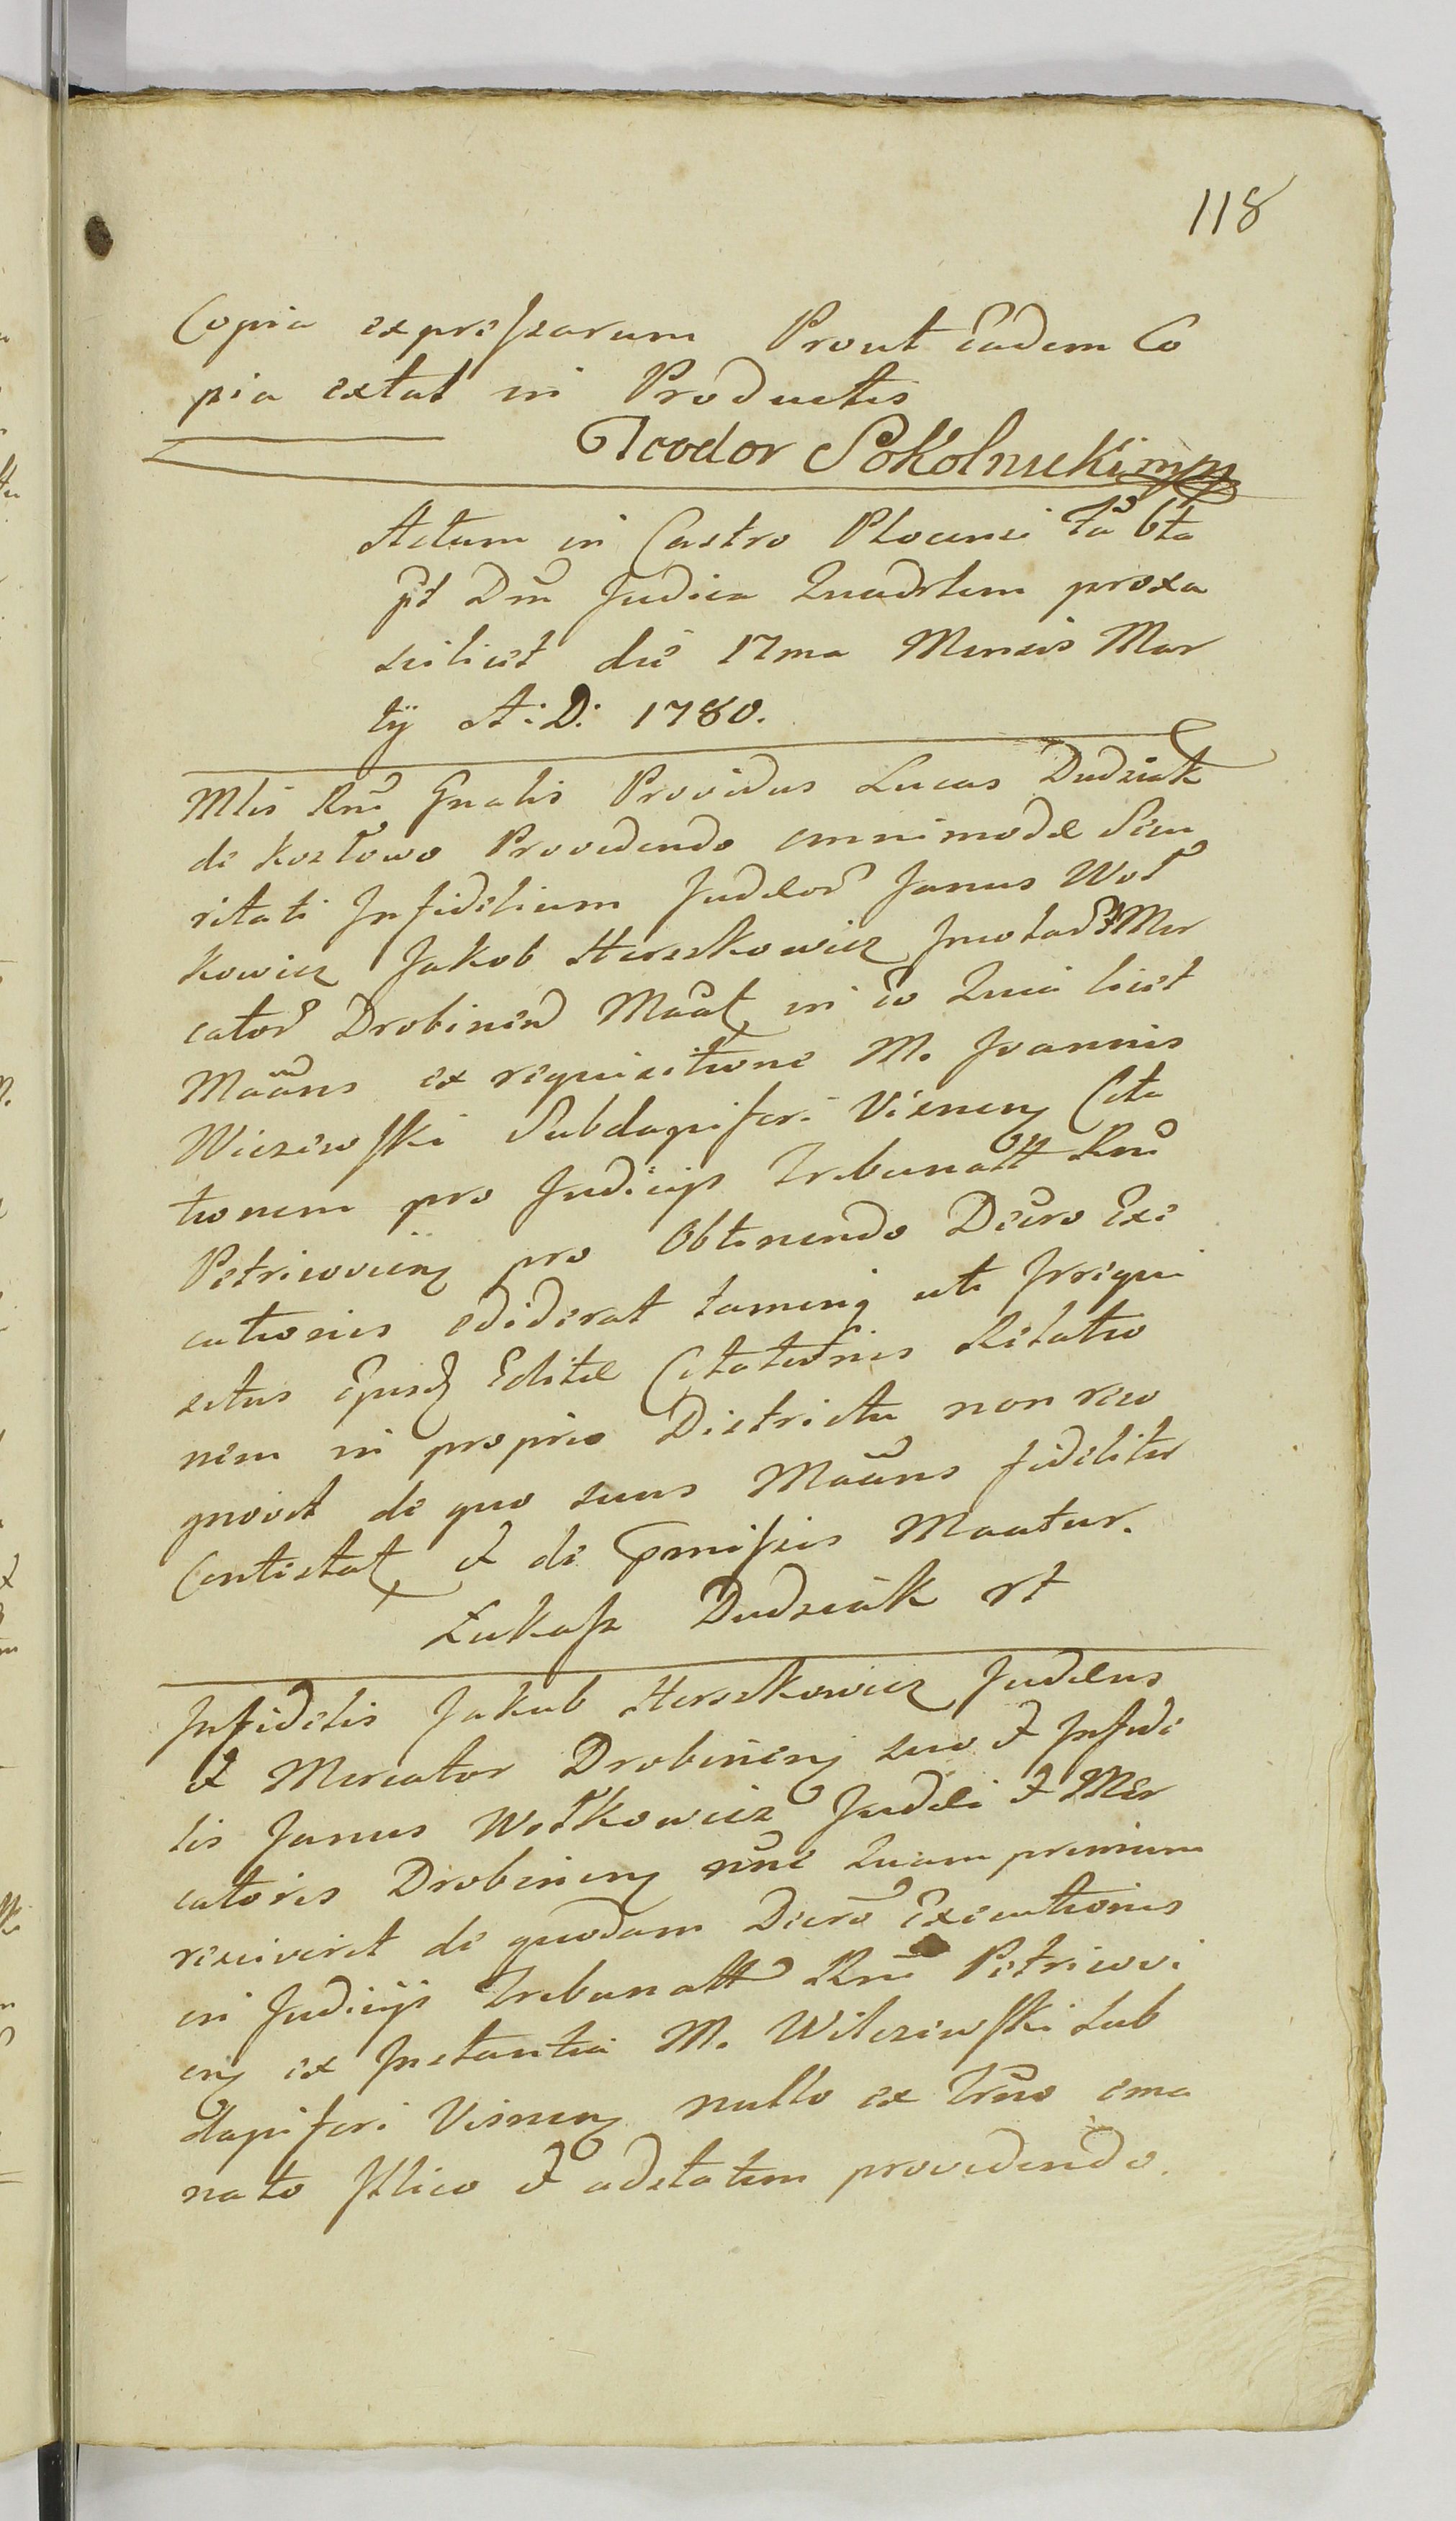 118
Copia expressarum Prout Eadem Co
pia extat in Productis
Teodor Sokolnicki mp
Actum in Castro Plocensi Fa 6ta
pt Dm Judica Quadrlem proxa
scilicet die 17ma Mensis Mar
tÿ A: D: 1780.
Mlis Rni Gnalis Providus Lucas Dudziak
de Kozłowo Providendo omnimodæ Secu
ritati Infidelium Judæor Janus Woł
kowicz Jakob Herszkowicz Incolar & Mer
cator Drobinen Maat in eo Quia licet
Maans ex requisitione M. Joannis
Wiczewski Subdapiferi Visnen Cita
tionem pro Judicijs Tribunalit Rni
Petricovien pro Obtinendo Decro Exe
cutionis ediderat tamen uti Irrequi
situs Ejusd Editæ Citationis Relatio
nem in proprio Districtu non reco
gnovit de quo suus Maans fideliter
Contestat & de pmissis Maatur.
Łukasz Dudziak rt
Infidelis Jakub Herszkowicz Judæus
& Mercator Drobinen suo & Infide
lis Janus Wołkowicz Judæi & Mer
catoris Drobinen nne Quam primum
resciverit de quodam Decro Executionis
in Judicijs Tribunalit Rni Petricovi
en ex Instantia M. Wilczewski Sub
dapiferi Visnen nullo ex Trno ema
nato Illico & adstatim providendo.